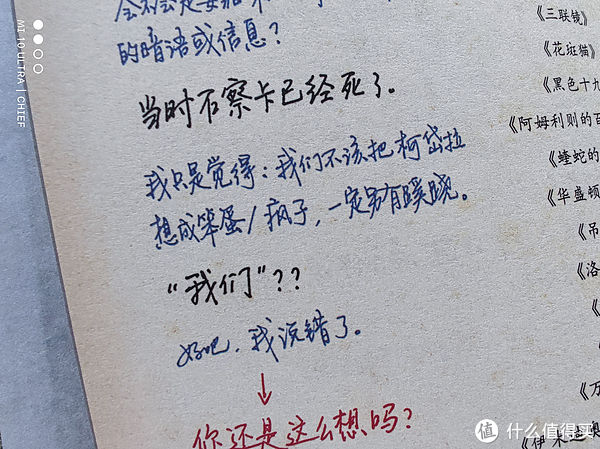 的暗语或信息？
当时石察卡已经死了。
我只是觉得：我们不该把柯岱拉
想成笨蛋/疯子，一定另有蹊跷。
“我们”??
好吧，我说错了。
↓
你还是这么想吗？
《三联镜》
《花斑猫》
《黑色十九
《阿姆利则的百
《蝰蛇的
《华盛顿
《吊
《洛
《
《万
《伊
MI 10 ULTRA | CHIEF
值 什么值得买